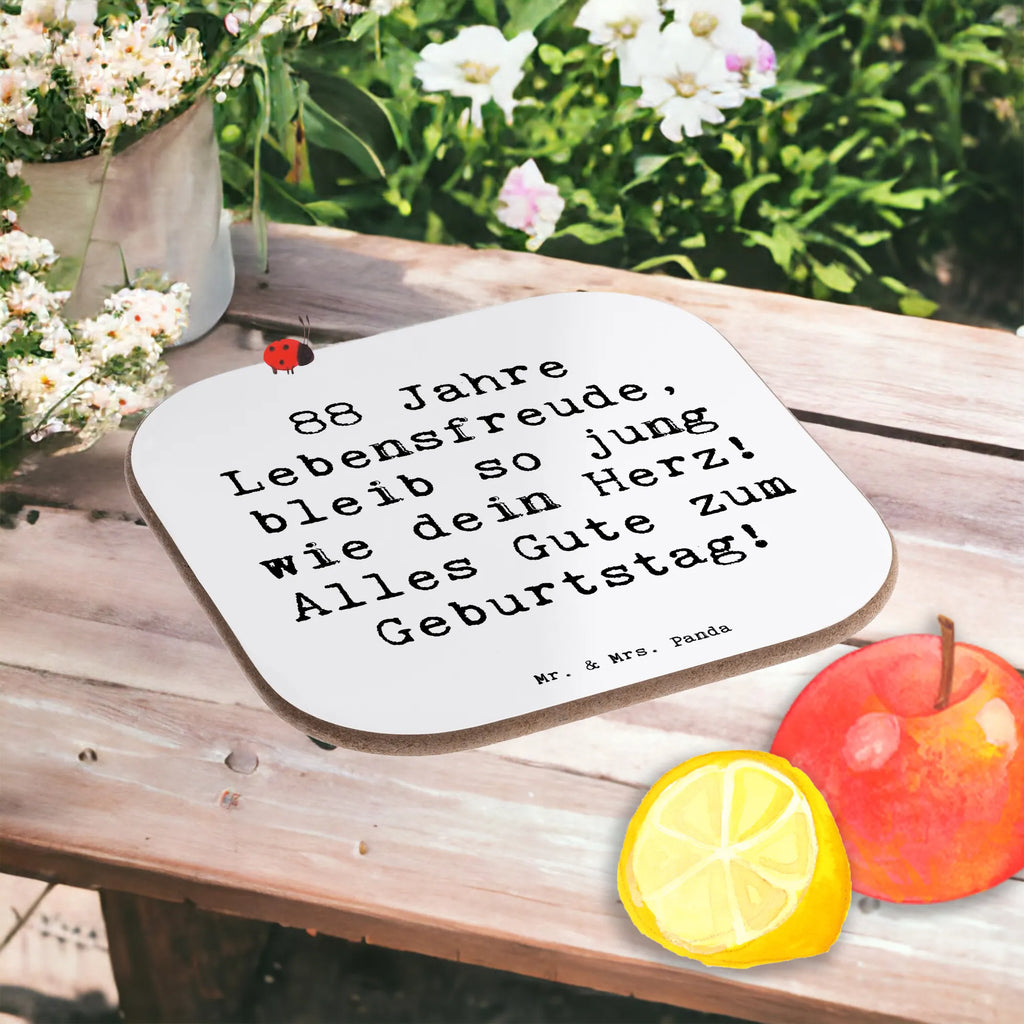 88 Jahre
Lebensfreude,
bleib so jung
wie dein Herz!
Alles Gute zum
Geburtstag!
Mr. & Mrs. Panda